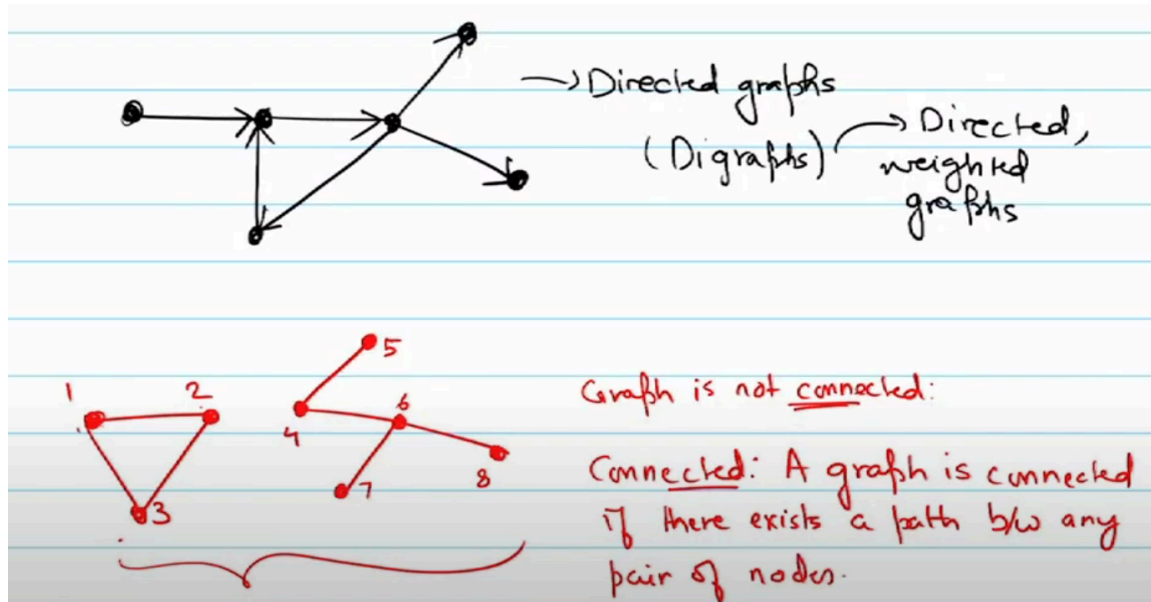 → Directed graphs
(Digraphs) → Directed,
weighted
graphs
5
1 2
6
4
7
8
3
Graph is not connected:
Connected: A graph is connected
if there exists a path b/w any
pair of nodes.